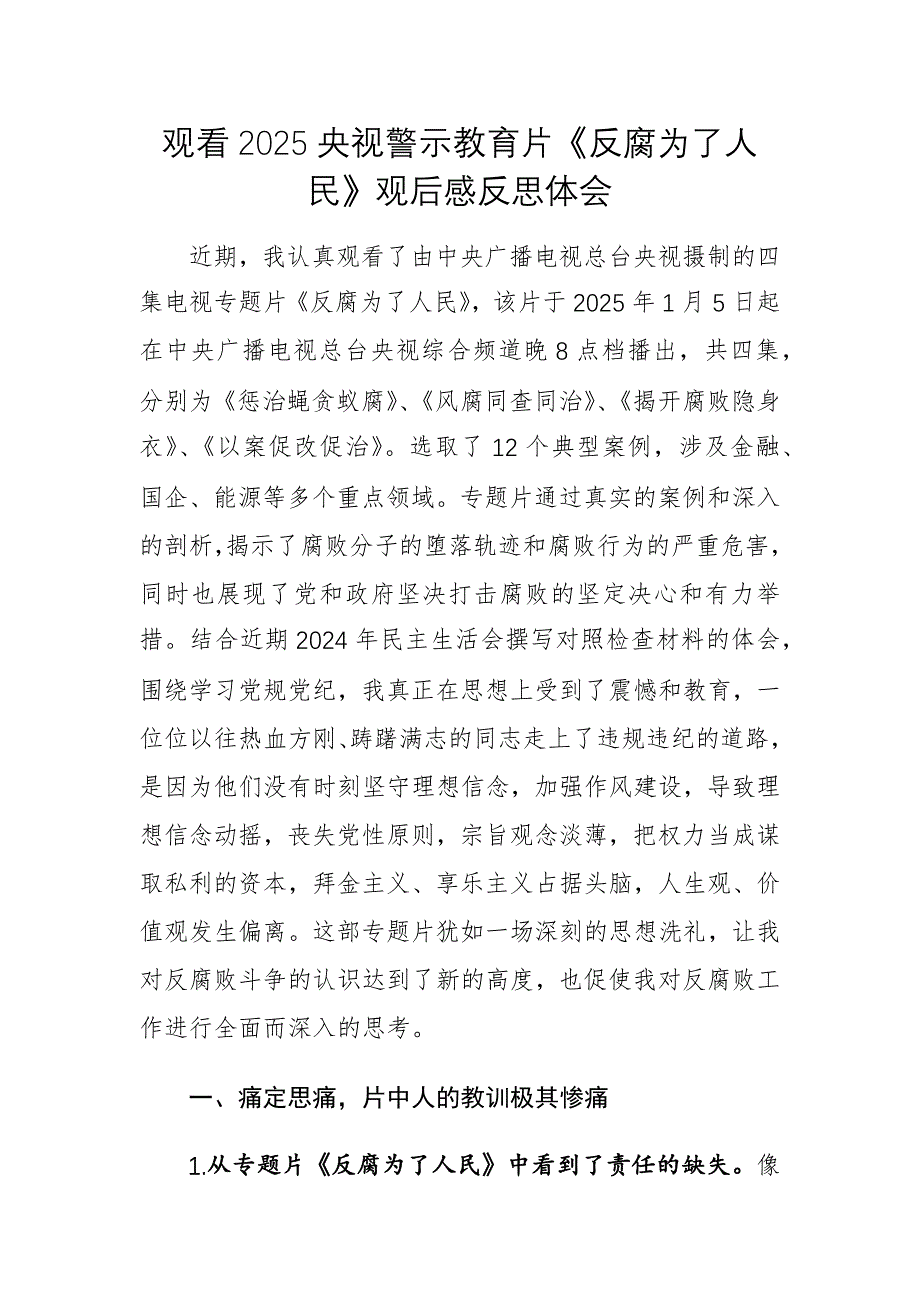 观看 2025 央视警示教育片《反腐为了人
民》观后感反思体会
近期，我认真观看了由中央广播电视总台央视摄制的四
集电视专题片《反腐为了人民》，该片于 2025 年 1 月 5 日起
在中央广播电视总台央视综合频道晚 8 点档播出，共四集，
分别为《惩治蝇贪蚁腐》、《风腐同查同治》、《揭开腐败隐身
衣》、《以案促改促治》。选取了 12 个典型案例，涉及金融、
国企、能源等多个重点领域。专题片通过真实的案例和深入
的剖析，揭示了腐败分子的堕落轨迹和腐败行为的严重危害，
同时也展现了党和政府坚决打击腐败的坚定决心和有力举
措。结合近期 2024 年民主生活会撰写对照检查材料的体会，
围绕学习党规党纪，我真正在思想上受到了震憾和教育，一
位位以往热血方刚、踌躇满志的同志走上了违规违纪的道路，
是因为他们没有时刻坚守理想信念，加强作风建设，导致理
想信念动摇，丧失党性原则，宗旨观念淡薄，把权力当成谋
取私利的资本，拜金主义、享乐主义占据头脑，人生观、价
值观发生偏离。这部专题片犹如一场深刻的思想洗礼，让我
对反腐败斗争的认识达到了新的高度，也促使我对反腐败工
作进行全面而深入的思考。
一、痛定思痛，片中人的教训极其惨痛
1.从专题片《反腐为了人民》中看到了责任的缺失。像